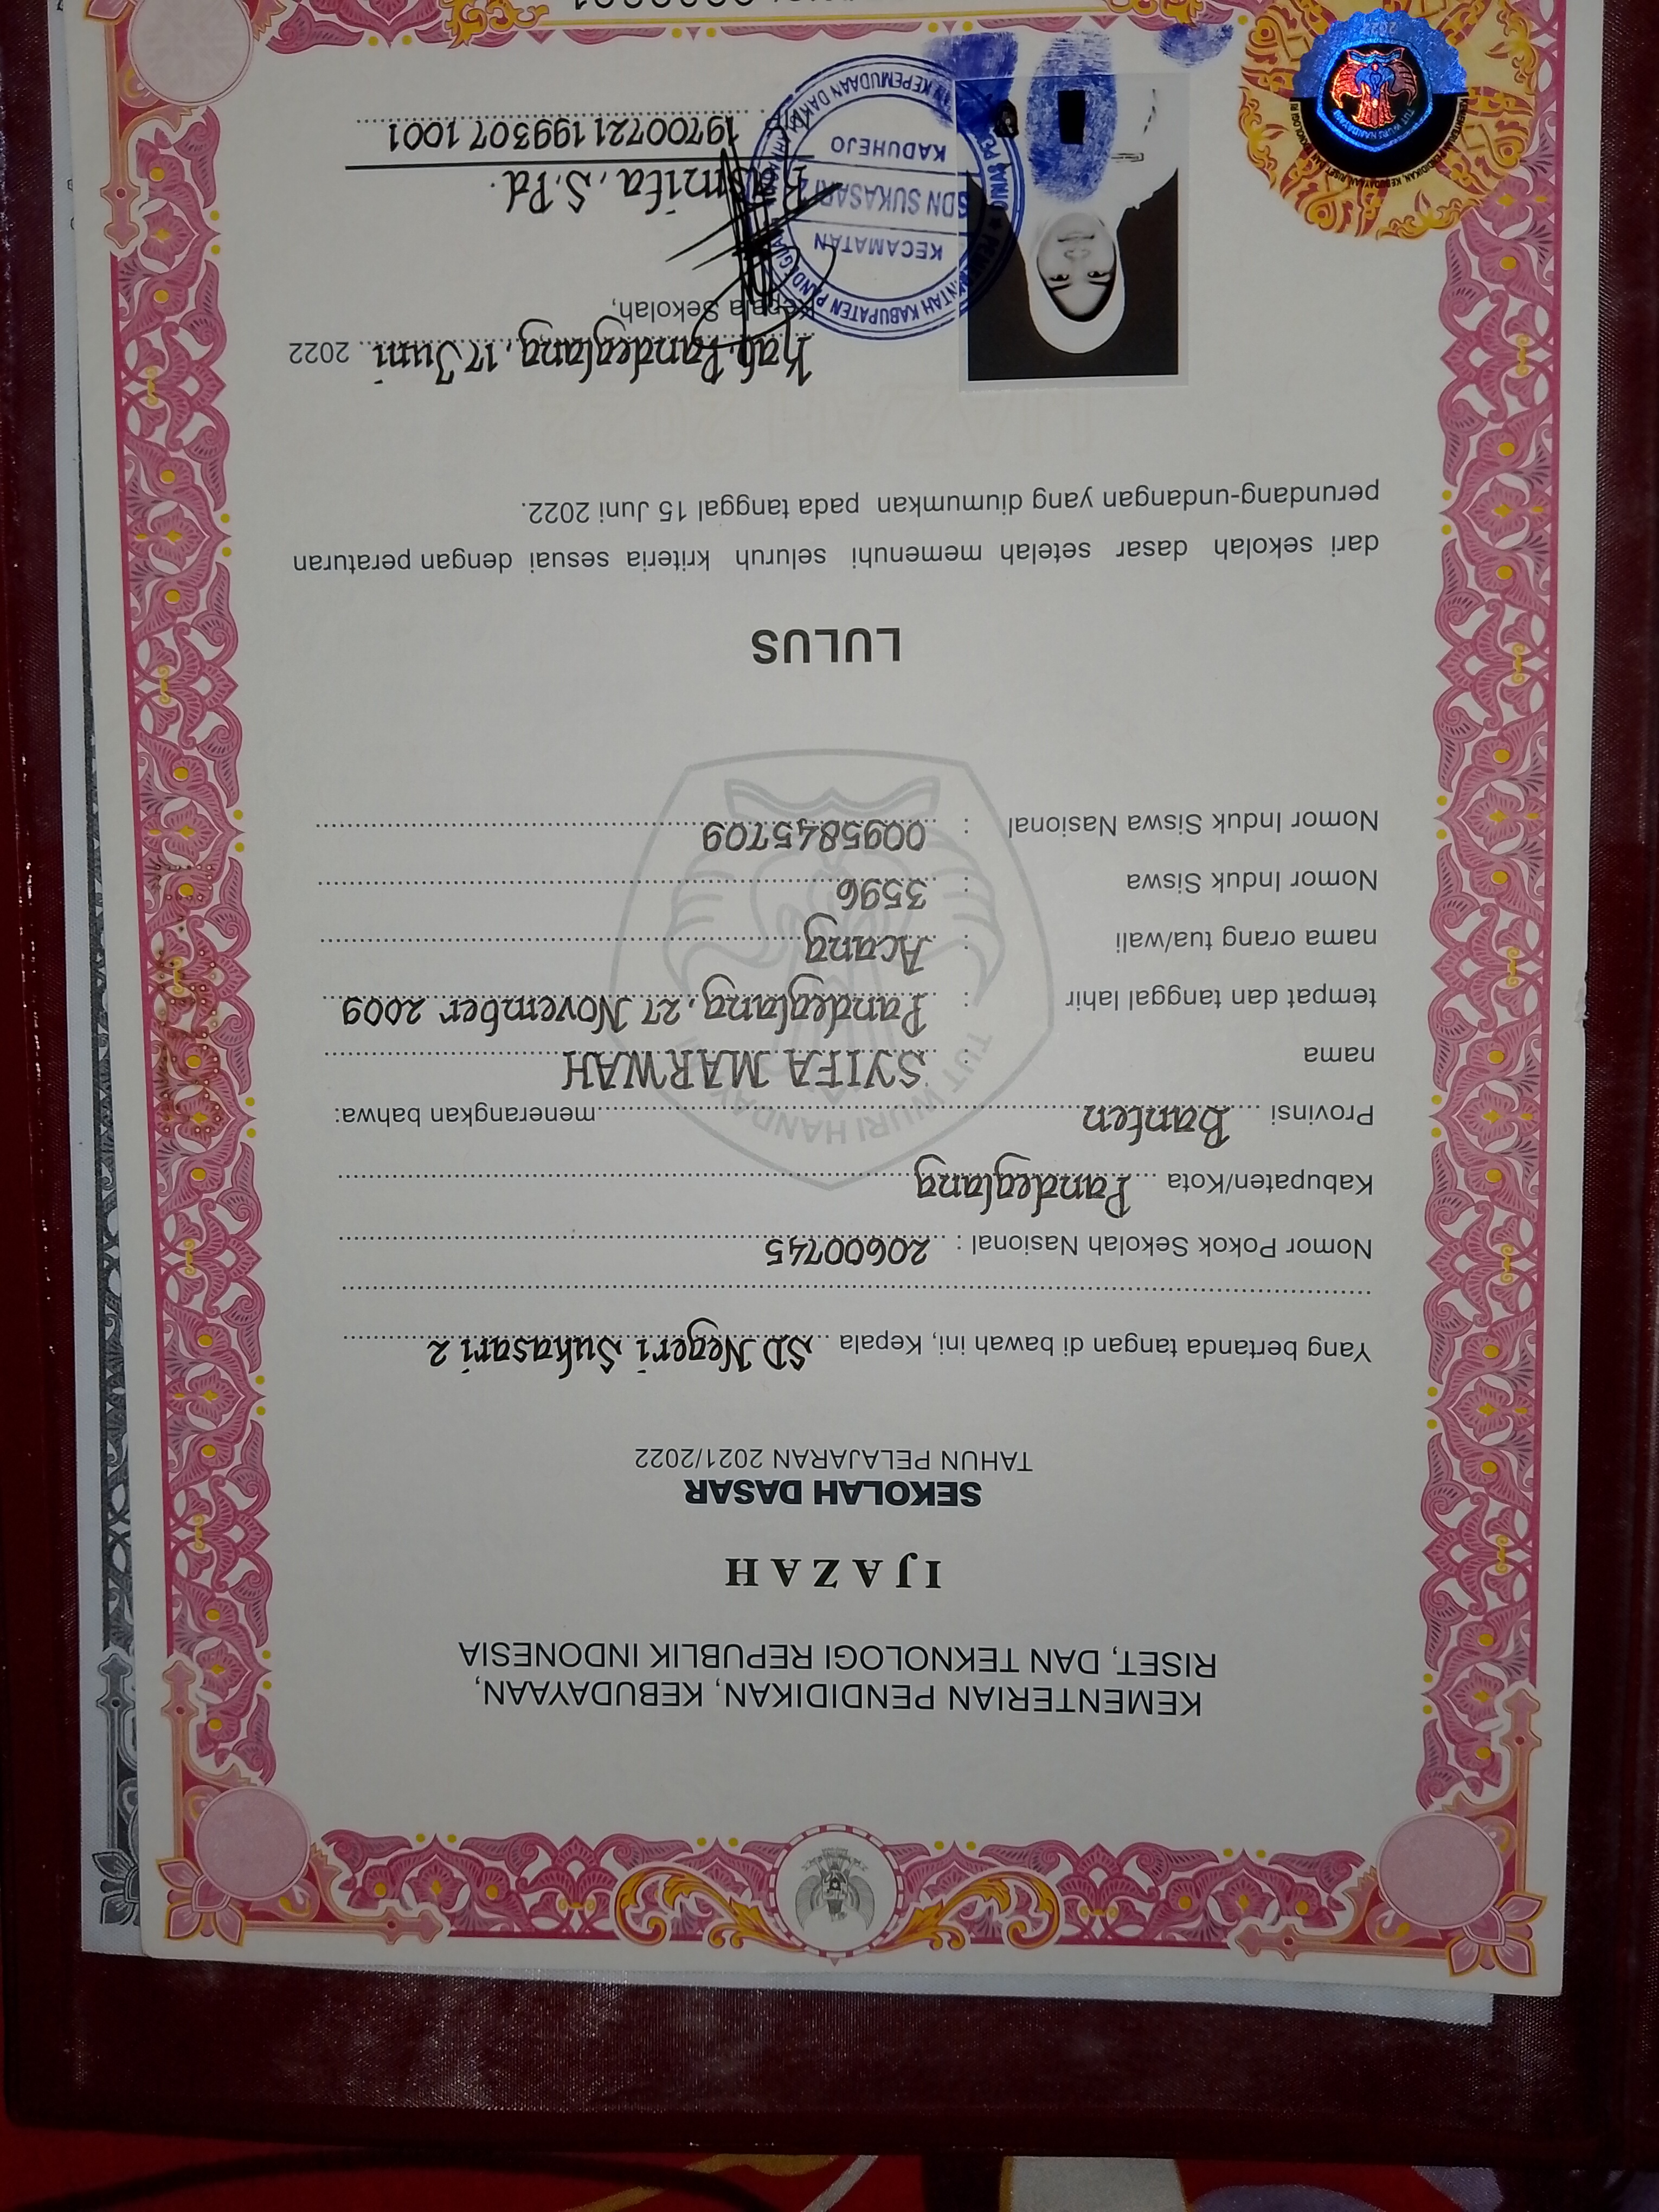 KEMENTERIAN PENDIDIKAN, KEBUDAYAAN,
RISET, DAN TEKNOLOGI REPUBLIK INDONESIA
IJAZAH
SEKOLAH DASAR
TAHUN PELAJARAN 2021/2022
Yang bertanda tangan di bawah ini, Kepala SD Negeri Sukasari 2
Nomor Pokok Sekolah Nasional : 20600745
Kabupaten/Kota Pandeglang
Provinsi Banten menerangkan bahwa:
TUT WURI HANDAYANI
nama : SYIFA MARWAH
tempat dan tanggal lahir : Pandeglang, 27 November 2009
nama orang tua/wali : Acang
Nomor Induk Siswa : 3596
Nomor Induk Siswa Nasional : 0095845709
LULUS
dari sekolah dasar setelah memenuhi seluruh kriteria sesuai dengan peraturan
perundang-undangan yang diumumkan pada tanggal 15 Juni 2022.
Kab. Pandeglang, 17 Juni 2022
Kepala Sekolah,
KABUPATEN
KECAMATAN
SDN SUKASARI 2
KADUHEJO
KEPEMUDAAN DAN
Rasmita, S.Pd.
19700721 199307 1001
KEMENTERIAN PENDIDIKAN, KEBUDAYAAN, RISET, DAN TEKNOLOGI RI
TUT WURI HANDAYANI